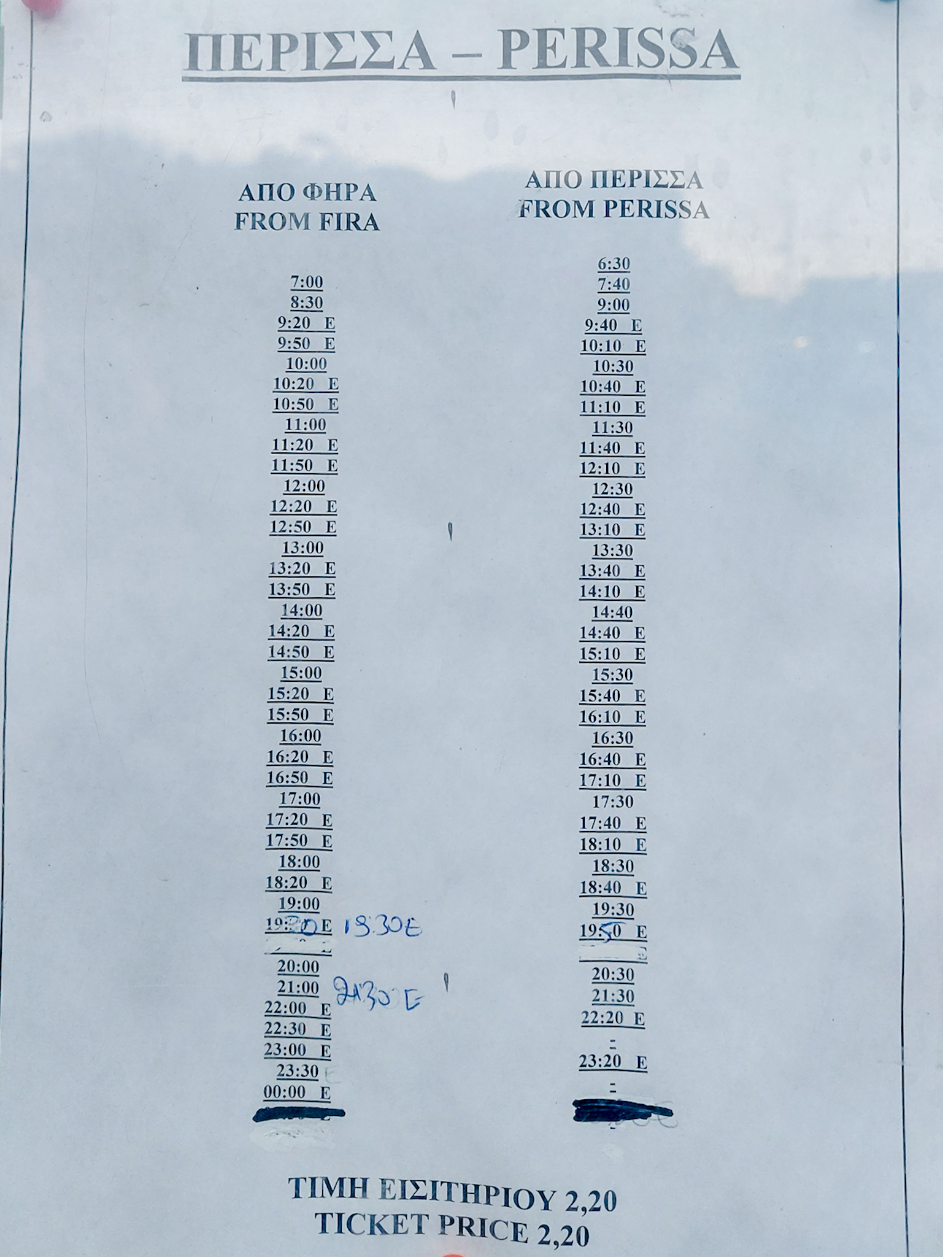 ΠΕΡΙΣΣΑ – PERISSA
ΑΠΟ ΦΗΡΑ
FROM FIRA
7:00
8:30
9:20 E
9:50 E
10:00
10:20 E
10:50 E
11:00
11:20 E
11:50 E
12:00
12:20 E
12:50 E
13:00
13:20 E
13:50 E
14:00
14:20 E
14:50 E
15:00
15:20 E
15:50 E
16:00
16:20 E
16:50 E
17:00
17:20 E
17:50 E
18:00
18:20 E
19:00
19:30 E 19 30 E
20:00
21:00 21 30 E
22:00 E
22:30 E
23:00 E
23:30 E
00:00 E
ΑΠΟ ΠΕΡΙΣΣΑ
FROM PERISSA
6:30
7:40
9:00
9:40 E
10:10 E
10:30
10:40 E
11:10 E
11:30
11:40 E
12:10 E
12:30
12:40 E
13:10 E
13:30
13:40 E
14:10 E
14:40
14:40 E
15:10 E
15:30
15:40 E
16:10 E
16:30
16:40 E
17:10 E
17:30
17:40 E
18:10 E
18:30
18:40 E
19:30
19:50 E
20:30
21:30
22:20 E
-
23:20 E
-
ΤΙΜΗ ΕΙΣΙΤΗΡΙΟΥ 2,20
TICKET PRICE 2,20